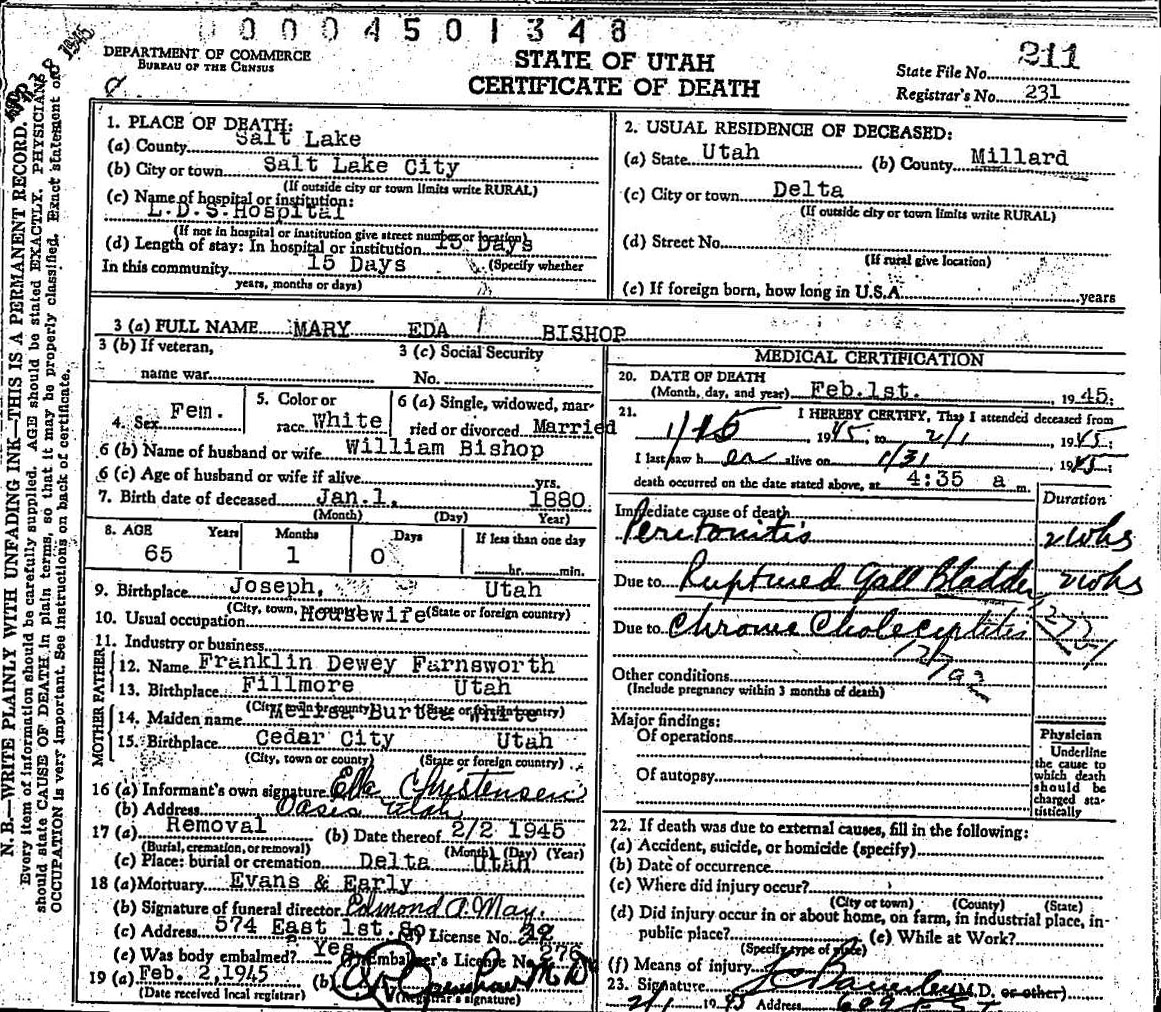 0 0 0 0 4 5 0 1 3 4 8
DEPARTMENT OF COMMERCE
BUREAU OF THE CENSUS
STATE OF UTAH
CERTIFICATE OF DEATH
State File No. 211
Registrar's No. 231
N. B.—WRITE PLAINLY WITH UNFADING INK—THIS IS A PERMANENT RECORD.
Every item of information should be carefully supplied. AGE should be stated EXACTLY. PHYSICIANS
should state CAUSE OF DEATH in plain terms, so that it may be properly classified. Exact statement of
OCCUPATION is very important. See instructions on back of certificate.
1. PLACE OF DEATH:
(a) County Salt Lake
(b) City or town Salt Lake City
(If outside city or town limits write RURAL)
(c) Name of hospital or institution:
L.D.S.Hospital
(If not in hospital or institution give street number or location)
(d) Length of stay: In hospital or institution 15 Days
In this community 15 Days (Specify whether
years, months or days)
2. USUAL RESIDENCE OF DECEASED:
(a) State Utah (b) County Millard
(c) City or town Delta
(If outside city or town limits write RURAL)
(d) Street No.
(If rural give location)
(e) If foreign born, how long in U.S.A. years
3 (a) FULL NAME MARY EDA BISHOP
3 (b) If veteran,
name war
3 (c) Social Security
No.
4. Sex Fem.
5. Color or
race White
6 (a) Single, widowed, mar-
ried or divorced Married
6 (b) Name of husband or wife William Bishop
6 (c) Age of husband or wife if alive yrs.
7. Birth date of deceased Jan.1. 1880
(Month) (Day) Year)
8. AGE Years Months Days If less than one day
65 1 0 hr. min.
9. Birthplace Joseph, Utah
(City, town, or county) (State or foreign country)
10. Usual occupation Housewife
11. Industry or business
FATHER
12. Name Franklin Dewey Farnsworth
13. Birthplace Fillmore Utah
(City, town or county) (State or foreign country)
MOTHER
14. Maiden name White
15. Birthplace Cedar City Utah
(City, town or county) (State or foreign country)
16 (a) Informant's own signature Ella Christensen
(b) Address Oasis Utah
17 (a) Removal (b) Date thereof 2/2 1945
(Burial, cremation, or removal) (Month) (Day) (Year)
(c) Place: burial or cremation Delta Utah
18 (a) Mortuary Evans & Early
(b) Signature of funeral director Edmond A. May.
(c) Address 574 East 1st.So. (d) License No.
(e) Was body embalmed? Yes (f) Embalmer's License No.
19 (a) Feb. 2,1945 (b) M D
(Date received local registrar) (Registrar's signature)
MEDICAL CERTIFICATION
20. DATE OF DEATH
(Month, day, and year) Feb.1st. 1945:
21. I HEREBY CERTIFY, That I attended deceased from
1945, to 2/1, 1945:
I last saw her alive on 1/31, 1945:
death occurred on the date stated above, at 4:35 a m.
Duration
Immediate cause of death
Peritonitis 2 wks
Due to Ruptured Gall Bladder 2 wks
Due to Chronic
127a2
Other conditions
(Include pregnancy within 3 months of death)
Major findings:
Of operations
Of autopsy
Physician
Underline
the cause to
which death
should be
charged sta-
tistically
22. If death was due to external causes, fill in the following:
(a) Accident, suicide, or homicide (specify)
(b) Date of occurrence
(c) Where did injury occur?
(City or town) (County) (State)
(d) Did injury occur in or about home, on farm, in industrial place, in-
public place? (e) While at Work?
(Specify type of place)
(f) Means of injury
23. Signature M.D. or other)
2/1 19 Address